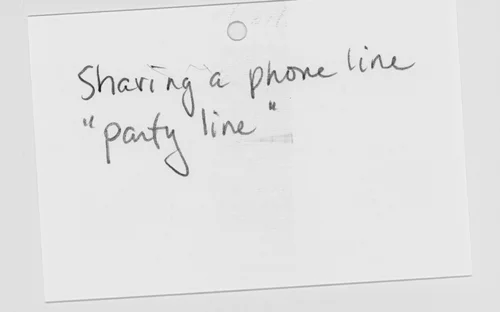 Sharing a phone line
"party line"